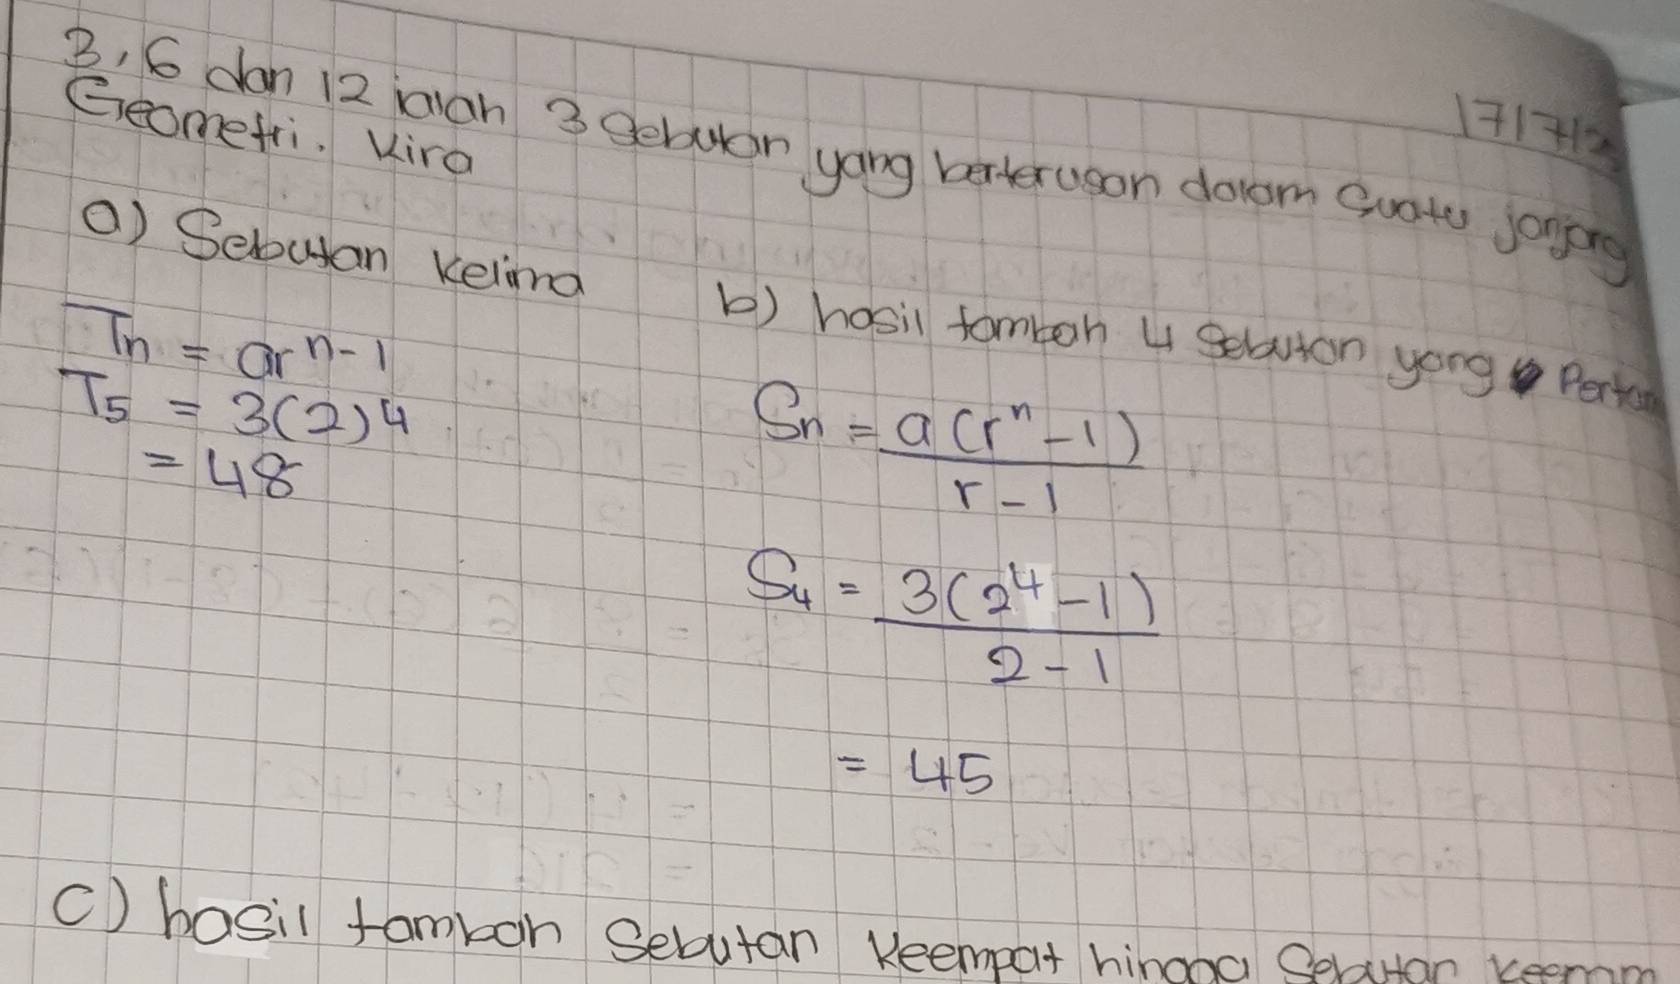 17/7/2
3, 6 dan 12 ialah 3 sebutan yang berterusan dalam suatu janjang
Geometri. Kira
a) Sebutan kelima
Tn = ar^n-1
T5 = 3(2)^4
= 48
b) hasil tambah 4 sebutan yang
Sn = a(r^n - 1)
r - 1
S4 = 3(2^4 - 1)
2 - 1
= 45
c) hasil tambah sebutan keempat hingga sebutan keenam